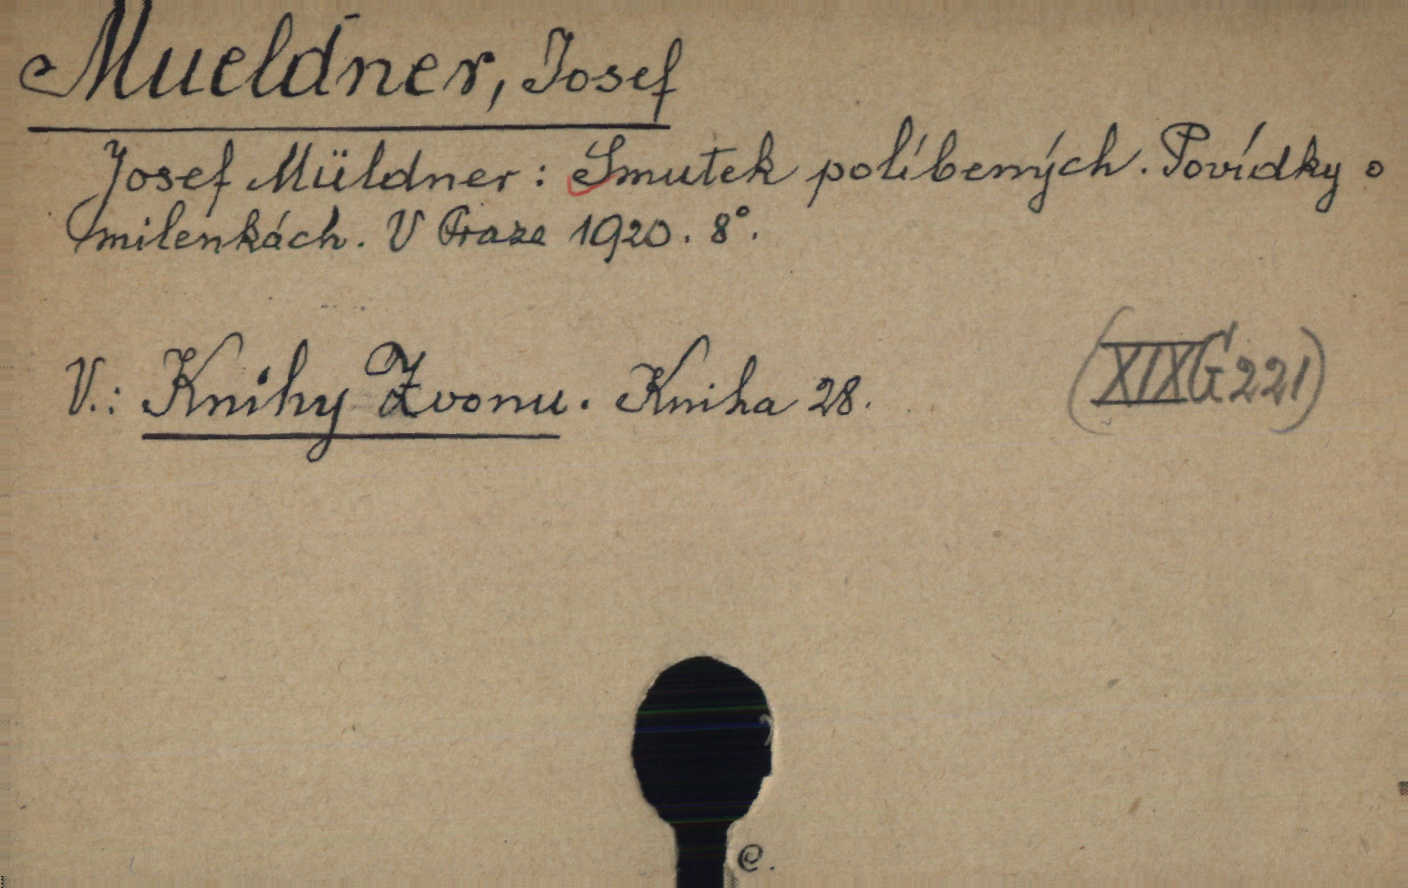 Mueldner, Josef
Josef Müldner: Smutek políbených. Povídky o
milenkách. V Praze 1920. 8°.
V.: Knihy Zvonu. Kniha 28. (XIX G 221)
e.